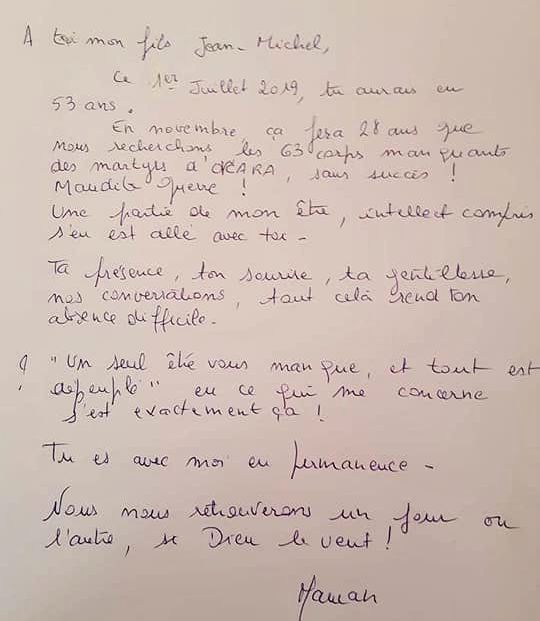 A toi mon fils Jean-Michel,
Ce 1er Juillet 2019, tu aurais eu
53 ans.
En novembre, ça fera 28 ans que
nous recherchons les 63 corps manquants
des martyrs d'OVCARA, sans succès !
Maudite guerre !
Une partie de mon être, intellect compris
s'en est allé avec toi -
Ta présence, ton sourire, ta gentillesse,
nos conversations, tout celà rend ton
absence difficile.
"Un seul être vous manque, et tout est
dépeuplé" en ce qui me concerne
s'est exactement ça !
Tu es avec moi en permanence -
Nous nous retrouverons un jour ou
l'autre, si Dieu le veut !
Maman